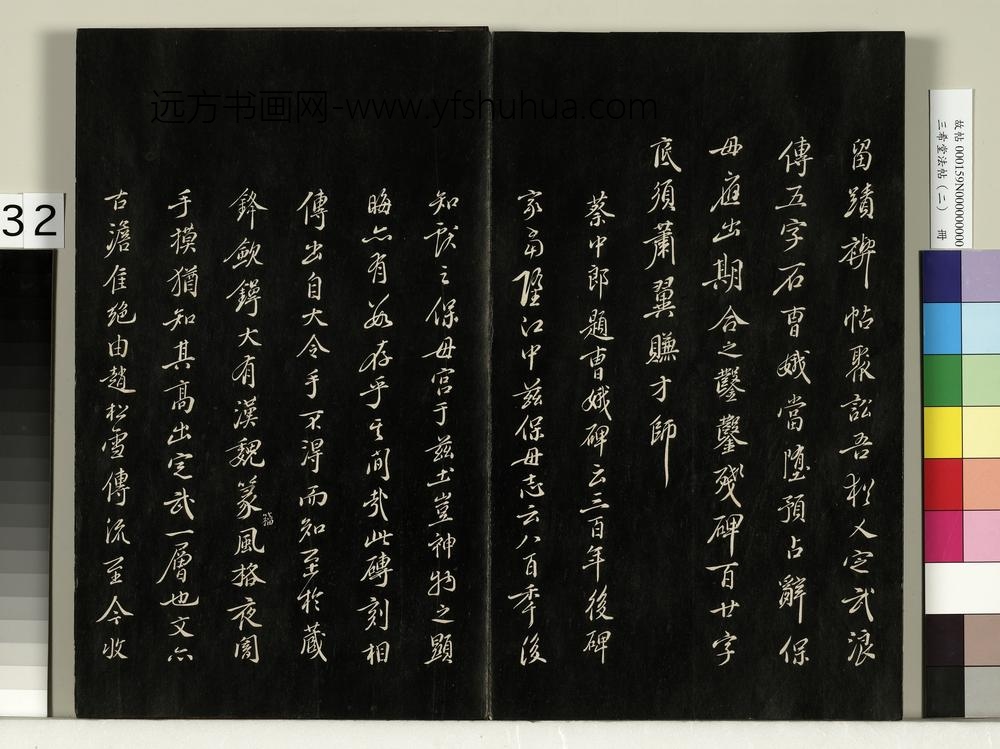 留蹟禊帖聚訟吾於又定武浪
傳五字石曹娥當墮預占辭保
母應出期合之鑿鑿殘碑百廿字
底須蕭翼賺才師
蔡中郎題曹娥碑云三百年後碑
家當墮江中茲保母志云八百季後
知獻之保母宮于茲土豈神物之顯
晦亦有數存乎其間哉此磚刻相
傳出自大令手不得而知至於藏
鋒歛鍔大有漢魏篆風格夜闇
籀
手摸猶知其高出定武一層也文亦
古澹隹絕由趙松雪傳流至今收
远方书画网-www.yfshuhua.com
故帖 000159N000000000
三希堂法帖(二) 冊
32